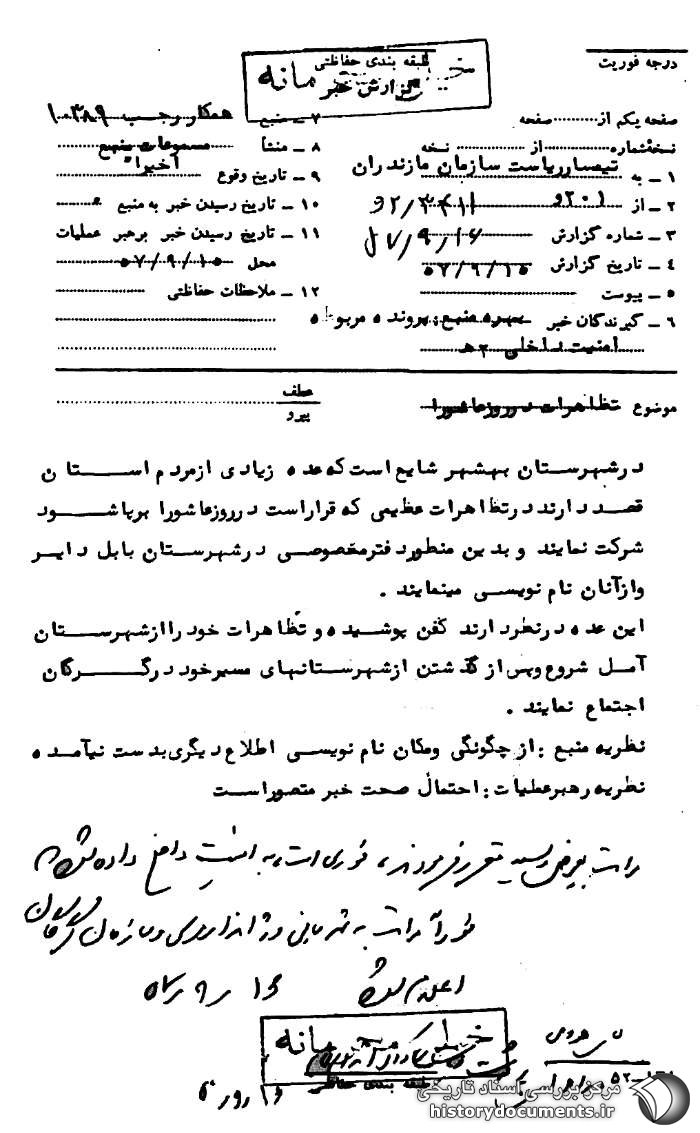 درجه فوریت
طبقه بندی حفاظتی
خیلی محرمانه
گزارش خبر
صفحه یکم از صفحه
نسخه شماره از نسخه
۱ - به تیمسار ریاست سازمان مازندران
۲ - از
۳ - شماره گزارش
۴ - تاریخ گزارش ۵۷/۹/۱۵
۵ - پیوست
۶ - گیرندگان خبر بهره منبع: پرونده مربوطه
امنیت داخلی ۲ هـ
۷ - منبع همکار رجب ۱۰۳۸۹
۸ - منشأ مسموعات منبع
۹ - تاریخ وقوع اخیراً
۱۰ - تاریخ رسیدن خبر به منبع
۱۱ - تاریخ رسیدن خبر برهبر عملیات
محل ۵۷/۹/۱۵
۱۲ - ملاحظات حفاظتی
موضوع تظاهرات در روز عاشورا
عطف
پیرو
در شهرستان بهشهر شایع است که عده زیادی از مردم استان
قصد دارند در تظاهرات عظیمی که قرار است در روز عاشورا برپا شود
شرکت نمایند و بدین منظور دفتر مخصوصی در شهرستان بابل دایر
و از آنان نام نویسی مینمایند .
این عده در نظر دارند کفن پوشیده و تظاهرات خود را از شهرستان
آمل شروع و پس از گذشتن از شهرستانهای مسیر خود در گرگان
اجتماع نمایند .
نظریه منبع : از چگونگی و مکان نام نویسی اطلاع دیگری بدست نیامده
نظریه رهبر عملیات : احتمال صحت خبر متصور است
فوراً مراتب به شهربانی و ژاندارمری و سازمان گرگان
اعلام شود ۱۶ ر ۹ ر ۵۷
خیلی محرمانه
طبقه بندی حفاظتی
مرکز بررسی اسناد تاریخی
historydocuments.ir